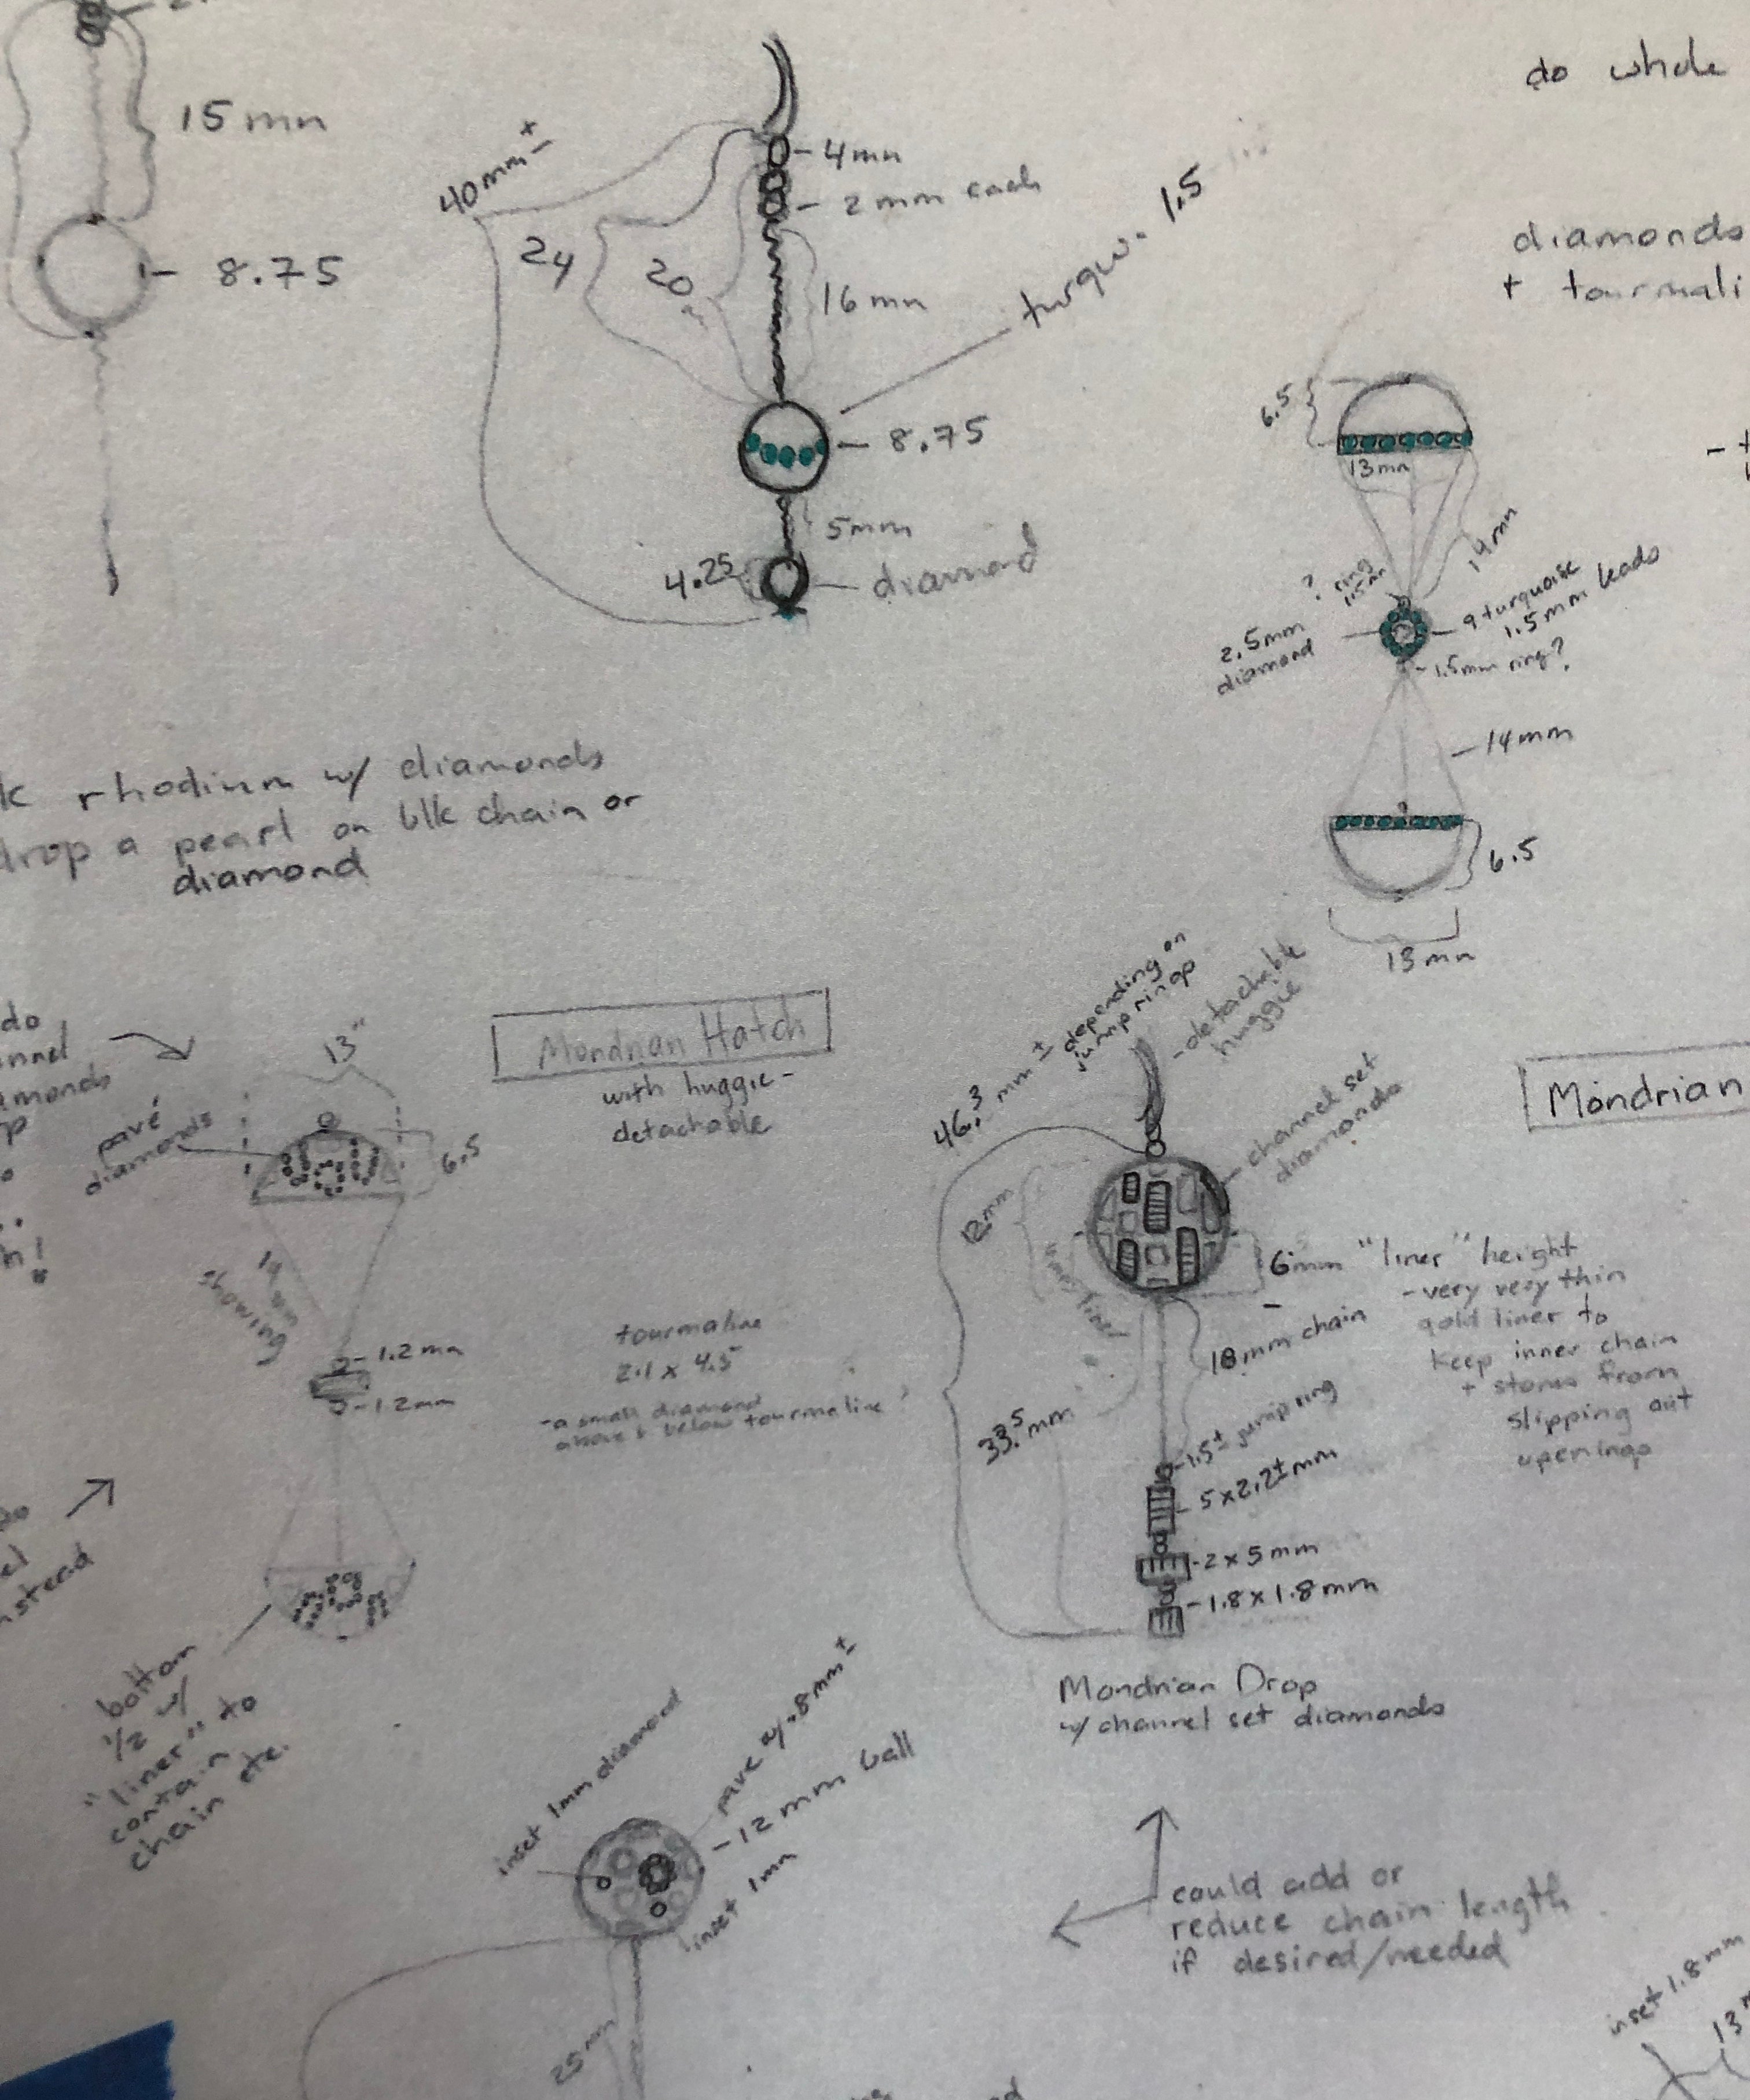 15mm
8.75
40mm ±
24
20
4mm
2 mm each
16 mm
turqu. 1.5
8.75
5mm
4.25
diamond
do whole
diamonds
+ tourmali
6.5
13mm
14mm
? ring
1.5mm
2.5mm
diamond
9 turquoise
1.5mm beads
1.5mm ring?
14mm
6.5
13mm
k rhodium w/ diamonds
drop a pearl on blk chain or
diamond
do
nnel
amonds
13"
pavé
diamonds
6.5
showing
1.2mm
1.2mm
Mondrian Hatch
with huggie-
detachable
tourmaline
2.1 x 4.5
-a small diamond
above & below tourmaline?
nstead
bottom
1/2 w/
"liner" to
contain
chain etc.
46.3 mm ± depending on
jump ring op
-detachable
huggie
channel set
diamonds
12mm
liner
6mm "liner" height
-very very thin
gold liner to
keep inner chain
+ stones from
slipping out
openings
18mm chain
33.5 mm
1.5± jump ring
5x2.2±mm
2x5mm
1.8x1.8mm
Mondrian Drop
w/ channel set diamonds
Mondrian
inset 1mm diamond
pave w/ .8mm±
-12mm ball
inset 1mm
25mm
could add or
reduce chain length
if desired/needed
inset 1.8mm
13